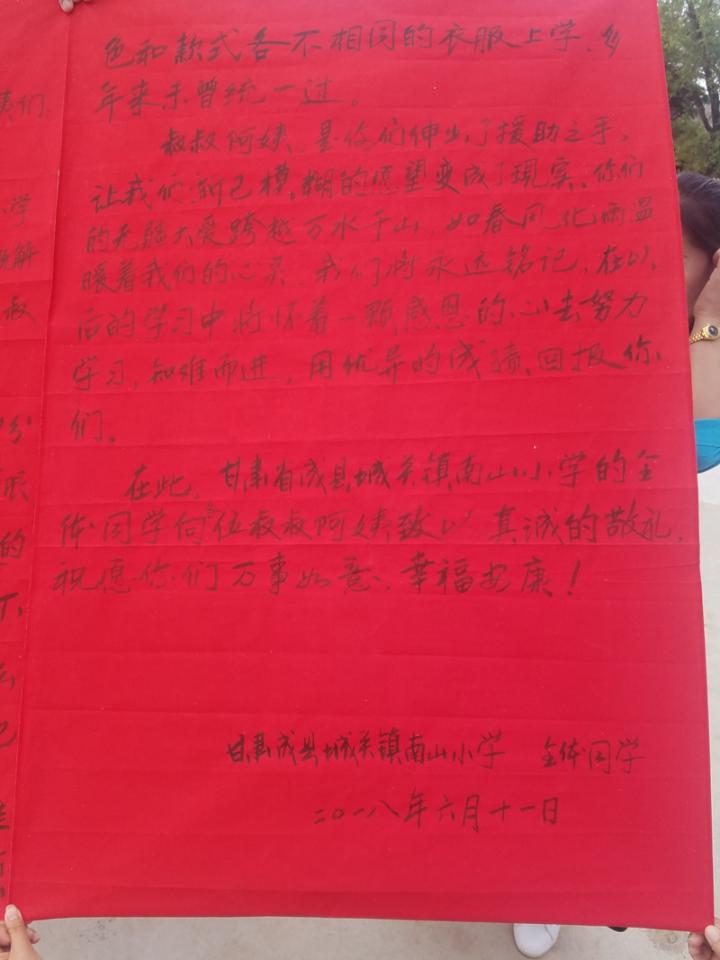 色和款式各不相同的衣服上学,多
年来未曾统一过。
叔叔阿姨,是你们伸出了援助之手,
让我们渐已模糊的愿望变成了现实。你们
的无疆大爱跨越万水千山,如春风化雨温
暖着我们的心灵,我们将永远铭记,在以
后的学习中将怀着一颗感恩的心去努力
学习,知难而进,用优异的成绩回报你
们。
在此,甘肃省成县城关镇南山小学的全
体同学向各位叔叔阿姨致以真诚的敬礼,
祝愿你们万事如意、幸福安康!
甘肃成县城关镇南山小学 全体同学
二〇一八年六月十一日
们.
学
解
叔
的